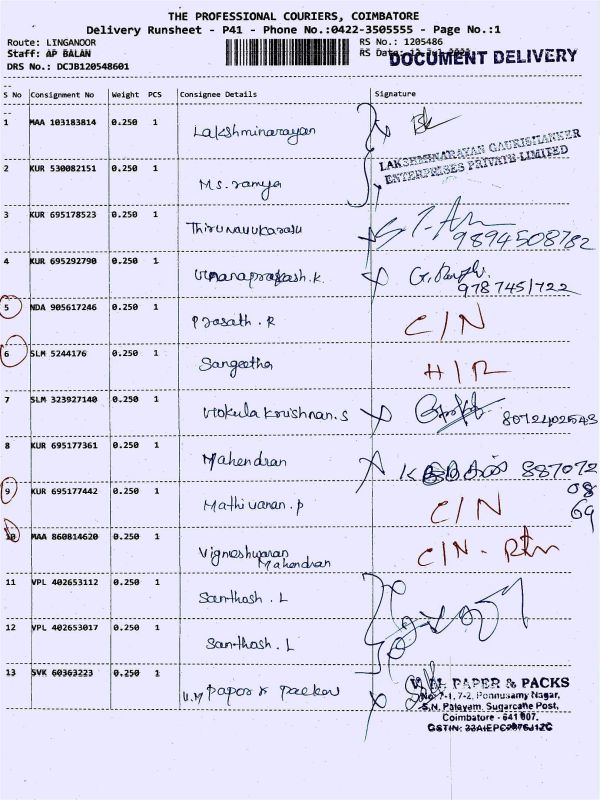 THE PROFESSIONAL COURIERS, COIMBATORE
Delivery Runsheet - P41 - Phone No.:0422-3505555 - Page No.:1
Route: LINGANOOR RS No.: 1205486
Staff: AP BALAN RS Date:
DOCUMENT DELIVERY
DRS No.: DCJB120548601
S No Consignment No Weight PCS Consignee Details Signature
1 MAA 103183814 0.250 1 Lakshminarayan
LAKSHMINARAYAN GAURISHANKER
ENTERPRISES PRIVATE LIMITED
2 KUR 530082151 0.250 1 Ms. ramya
3 KUR 695178523 0.250 1 Thirunavukarasu
9894508782
4 KUR 695292790 0.250 1
9787451722
5 NDA 905617246 0.250 1 Prasath. R C/N
6 SLM 5244176 0.250 1 Sangeetha
7 SLM 323927140 0.250 1 Gokula krishnan. S
8072402543
8 KUR 695177361 0.250 1 Mahendran 887072
08
69
9 KUR 695177442 0.250 1 Mathivanan. P C/N
10 MAA 860814620 0.250 1 Vigneshwaran C/N - Rtn
Mahendran
11 VPL 402653112 0.250 1 Santhosh . L
12 VPL 402653017 0.250 1 Santhosh . L
13 SVK 60363223 0.250 1
PAPER & PACKS
No: 7-1, 7-2, Ponnusamy Nagar,
S.N. Palayam, Sugarcane Post,
Coimbatore - 641 007.